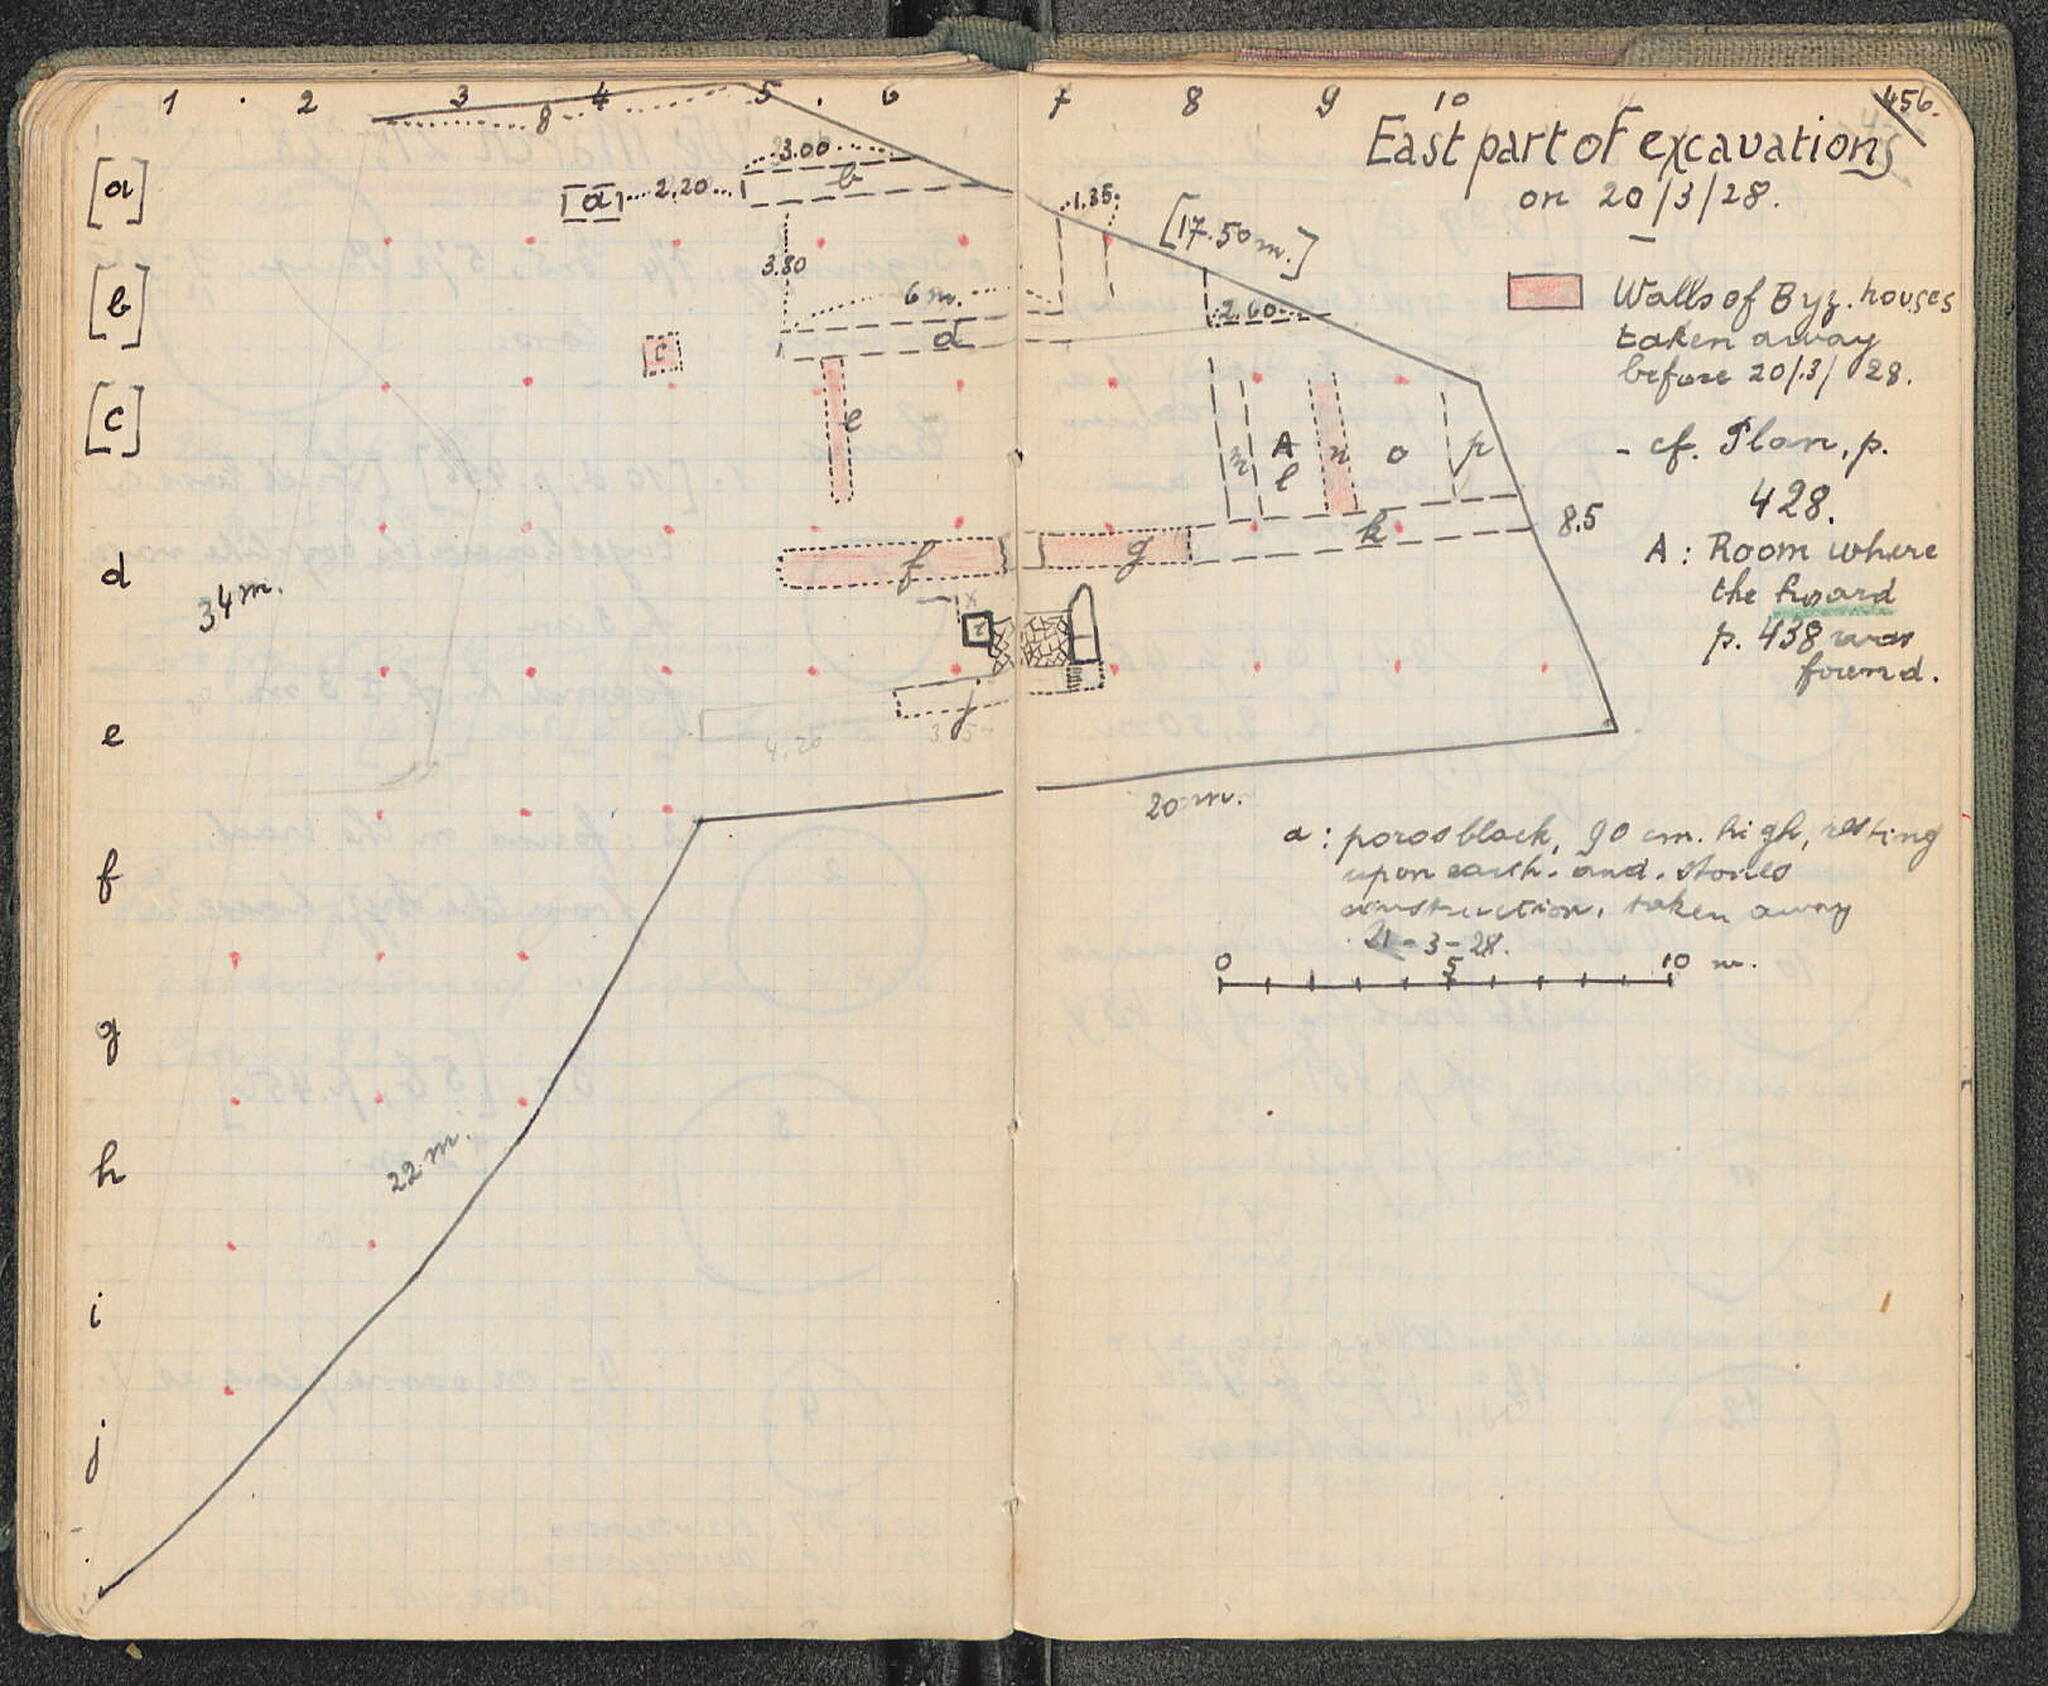 1 . 2 3 4 5 . 6 7 8 9 10
456.
8
East part of excavations
on 20/3/28.
[a]
3.00
b
a
2,20
1,35
[17.50 m.]
[b]
3.80
6 m.
2.60
d
c
Walls of Byz. houses
taken away
before 20/3/28.
[c]
e
m A n o p
l
- cf. Plan, p.
428.
k
8,5
d
f
g
34 m.
A : Room where
the hoard
p. 438 was
found.
x
i
j
e
4,20
20 m.
a : poros block, 90 cm. high, resting
upon earth. and. stones
construction, taken away
21-3-28.
0 5 10 m.
f
g
h
22 m.
i
j